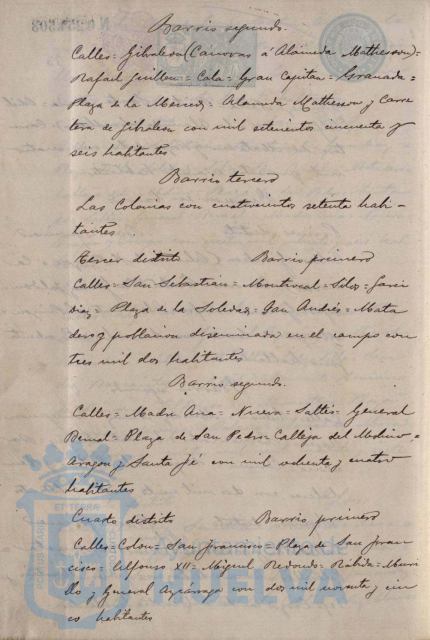 Barrio segundo.
Calles= Gibraleon (Canovas á Alameda Mathesson)=
Rafael Guillen= Cala= Gran Capitan= Granada=
Plaza de la Merced= Alameda Mathesson y Carre
tera de Gibraleon con mil setecientos cincuenta y
seis habitantes
Barrio tercero
Las Colonias con cuatrocientos setenta habi-
tantes
Tercer distrito Barrio primero
Calles= San Sebastian= Montrocal= Silos= Garci
diaz= Plaza de la Soledad= San Andrés= Mata
dero y poblacion diseminada en el campo con
tres mil dos habitantes
Barrio segundo.
Calles= Madre Ana= Nueva= Saltés= General
Bernal= Plaza de San Pedro= Calleja del Molino=
Aragon y Santa Fé con mil ochenta y cuatro
habitantes
Cuarto distrito Barrio primero
Calles= Colon= San Francisco= Plaza de San Fran
cisco= Alfonso XII= Miguel Redondo= Rabida= Muri
llo y General Azcárraga con dos mil noventa y cin
co habitantes
HUELVA